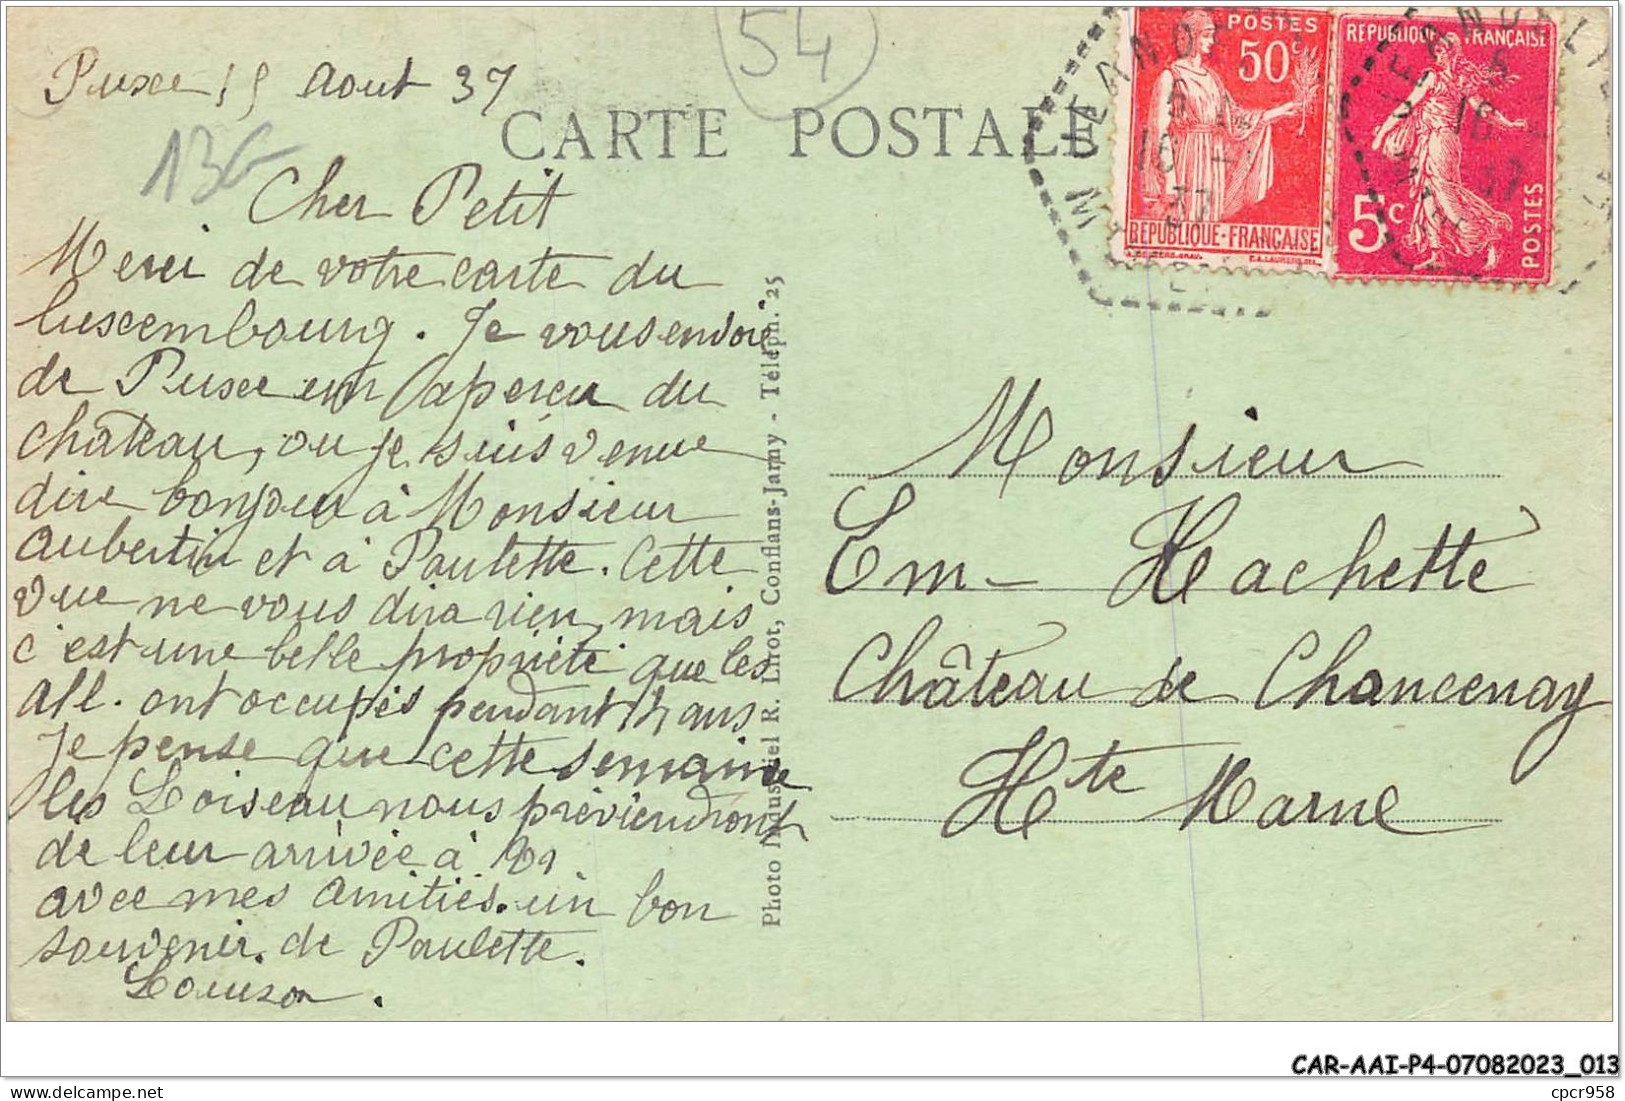 Puxe 15 Aout 37
54
13G
CARTE POSTALE
Cher Petit
Merci de votre carte du
luxembourg. Je vous envoie
de Puxe un aperçu du
château, ou je suis venue
dire bonjour à Monsieur
Aubertin et à Paulette. Cette
vue ne vous dira rien, mais
c'est une belle propriété que les
all. ont occupés pendant 4 ans
Je pense que cette semaine
les Loiseau nous préviendront
de leur arrivée à
avec mes amitiés. un bon
souvenir. de Paulette.
Louison.
Photo Industriel R. Lirot, Conflans-Jarny - Téléph. 25
POSTES
50c
REPUBLIQUE-FRANÇAISE
REPUBLIQUE FRANÇAISE
5c
POSTES
16
37
16
37
Monsieur
Em- Hachette
Château de Chancenay
Hte Marne
CAR-AAI-P4-07082023_013
cpcr958